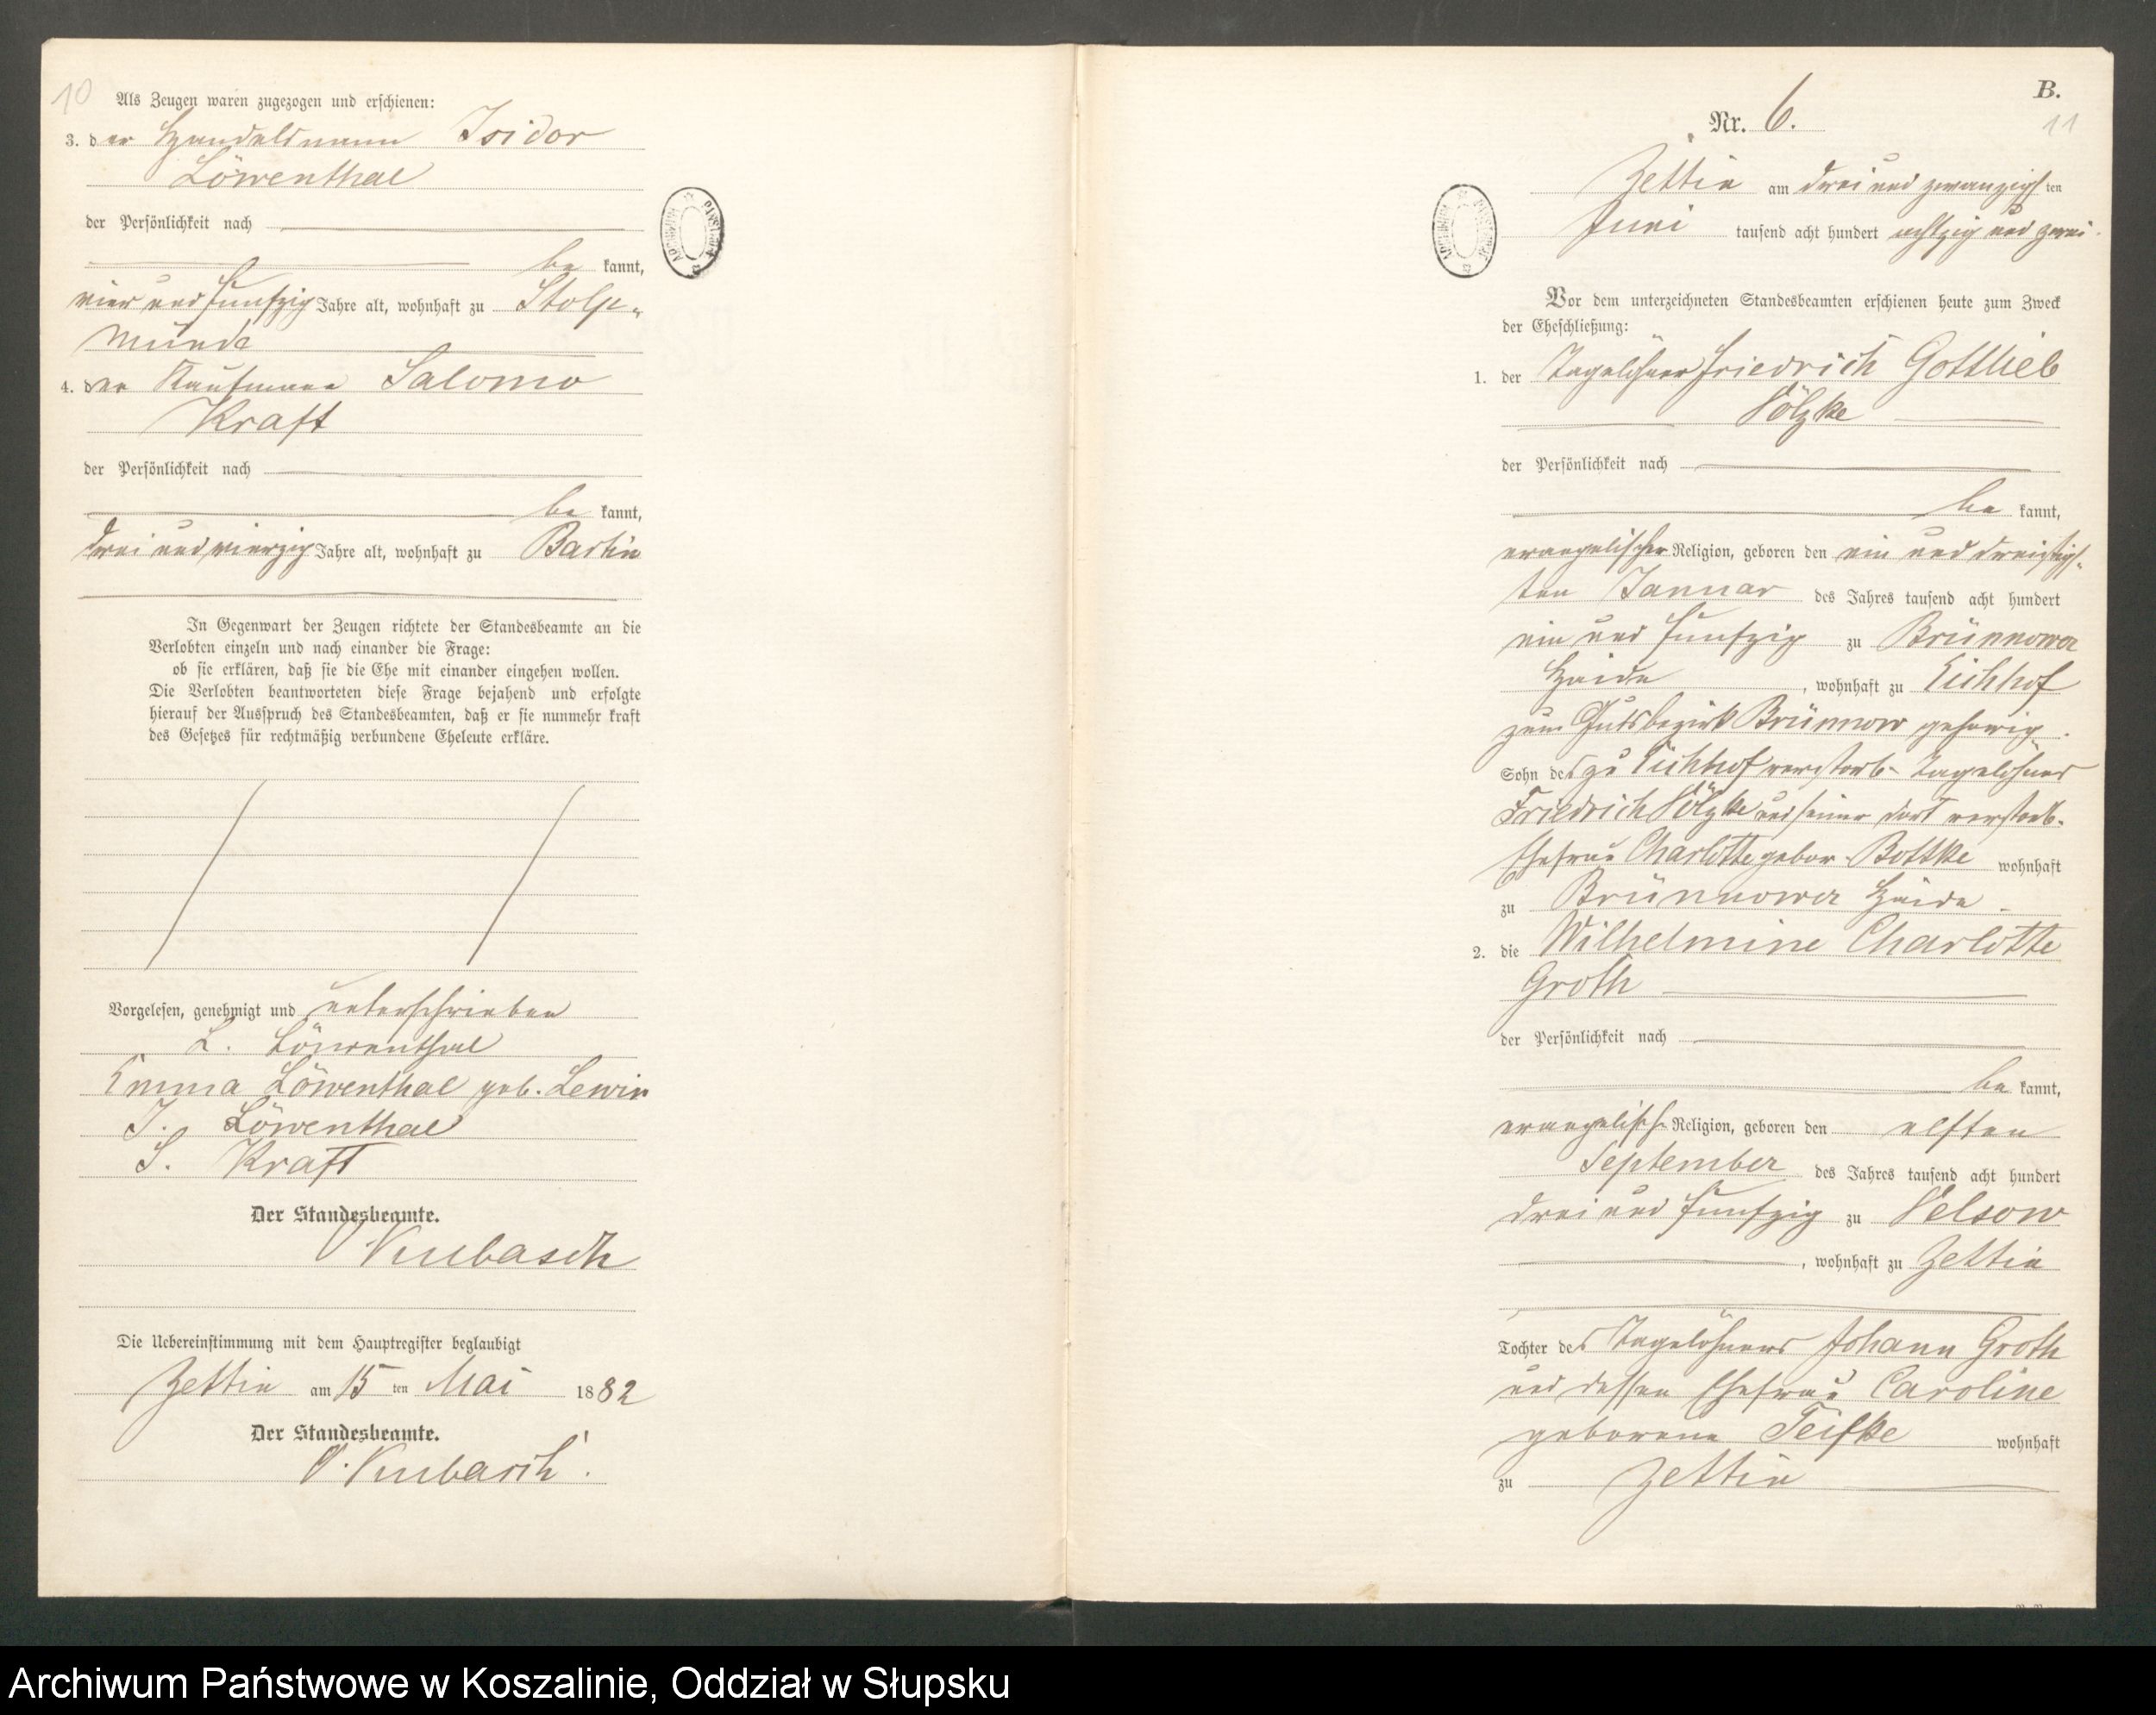 10
Als Zeugen waren zugezogen und erschienen:
3. der Handelsmann Isidor
Löwenthal
der Persönlichkeit nach
be kannt,
vier und fünfzig Jahre alt, wohnhaft zu Stolp-
münde
4. der Kaufmann Salomo
Kraft
der Persönlichkeit nach
be kannt,
drei und vierzig Jahre alt, wohnhaft zu Bartin
In Gegenwart der Zeugen richtete der Standesbeamte an die
Verlobten einzeln und nach einander die Frage:
ob sie erklären, daß sie die Ehe mit einander eingehen wollen.
Die Verlobten beantworteten diese Frage bejahend und erfolgte
hierauf der Ausspruch des Standesbeamten, daß er sie nunmehr kraft
des Gesetzes für rechtmäßig verbundene Eheleute erkläre.
Vorgelesen, genehmigt und unterschrieben
L. Löwenthal
Emma Löwenthal geb. Lewin
I. Löwenthal
S. Kraft
Der Standesbeamte.
Die Uebereinstimmung mit dem Hauptregister beglaubigt
Zettin am 15 ten Mai 1882
Der Standesbeamte.
B.
11
Nr. 6.
Zettin am drei und zwanzigsten
Juni tausend acht hundert achtzig und zwei.
Vor dem unterzeichneten Standesbeamten erschienen heute zum Zweck
der Eheschließung:
1. der Tagelöhner Friedrich Gottlieb
Völzke
der Persönlichkeit nach
be kannt,
evangelischer Religion, geboren den ein und dreißigs-
ten Januar des Jahres tausend acht hundert
ein und fünfzig zu Brünnower
Haide, wohnhaft zu Eichhof
zum Gutsbezirk Brünnow gehörig.
Sohn des zu Eichhof verstorb. Tagelöhner
Friedrich Völzke und seiner dort verstorb.
Ehefrau Charlotte gebor. Bottke wohnhaft
zu Brünnower Haide.
2. die Wilhelmine Charlotte
Groth
der Persönlichkeit nach
be kannt,
evangelisch Religion, geboren den elften
September des Jahres tausend acht hundert
drei und fünfzig zu Velsow
, wohnhaft zu Zettin
Tochter des Tagelöhners Johann Groth
und dessen Ehefrau Caroline
geborene wohnhaft
zu Zettin
Archiwum Państwowe w Koszalinie, Oddział w Słupsku